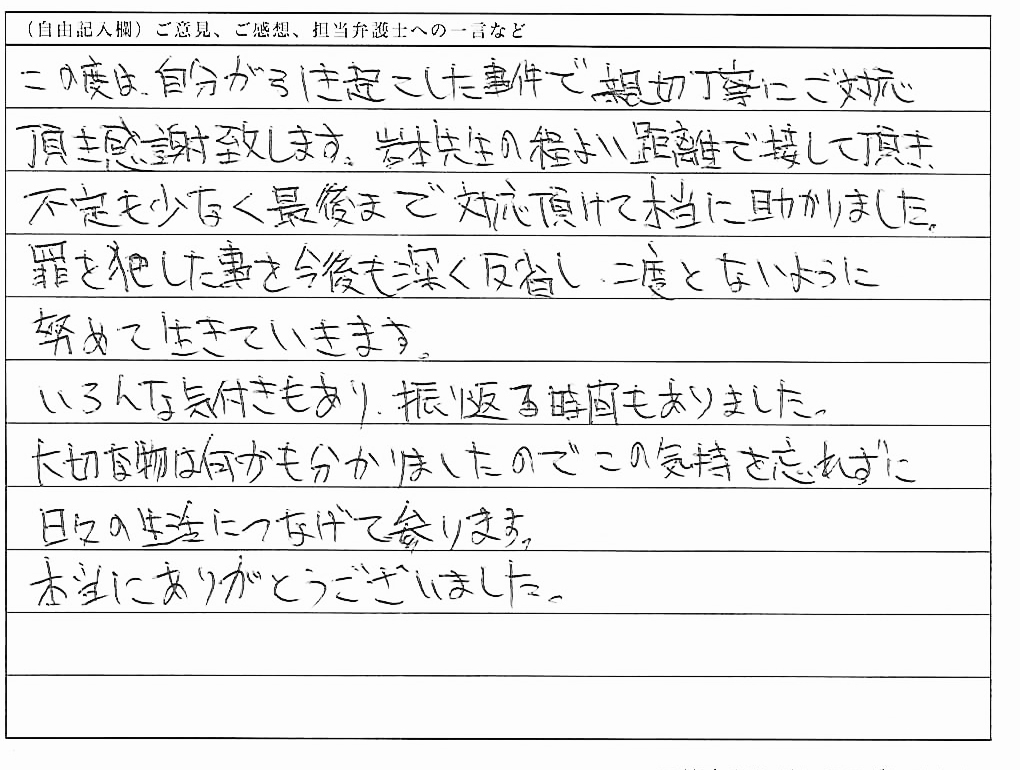 (自由記入欄)ご意見、ご感想、担当弁護士への一言など
この度は、自分が引き起こした事件で親切丁寧にご対応
頂き感謝致します。岩本先生の程よい距離で接して頂き、
不定も少なく最後まで対応頂けて本当に助かりました。
罪を犯した事を今後も深く反省し、二度とないように
努めて生きていきます。
いろんな気付きもあり、振り返る時間もありました。
大切な物は何かも分かりましたのでこの気持を忘れずに
日々の生活につなげて参ります。
本当にありがとうございました。